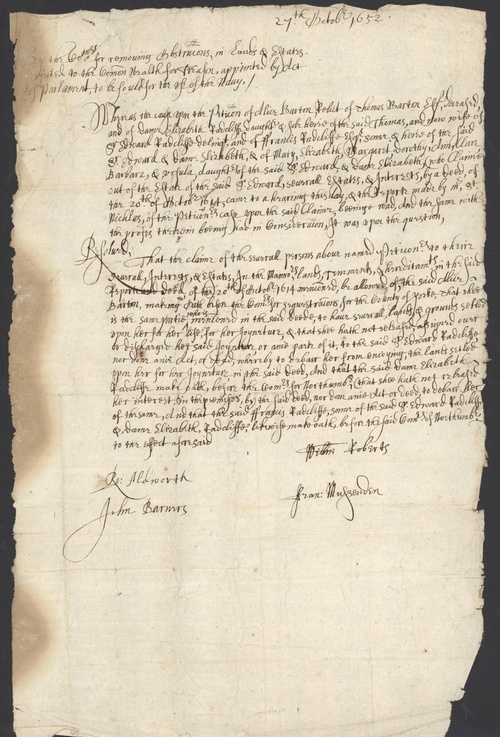 27th Octobr 1652.
By the Comrs for removing Obstruccons, in Lands & Estates
to the Comon Wealth for Treason, appointed by Act
Parliament, to be sould for the use of the Navy. /
Whereas the case upon the Peticon of Alice Barton Relict of Thomas Barton Esqr, deceased,
and of dame Elizabeth Radcliffe daughter & sole heire of the said Thomas, and now wife of
Sr Edward Radcliffe and of ffrancis Radcliffe Esqr, sonne & heire of the said
Sr Edward & dame Elizabeth, & of Mary, Elizabeth, Margaret, dorothy, Ann,
Barbara, & Ursula, daughters of the said Sr Edward, & dame Elizabeth, who Claime
out of the Estate of the said Sr Edward, severall Estates, & Interests, by a deed, of
the 20th of Octobr 1614, came to a hearing this day, & the Reporte made by mr,
Nichles, of the Peticoners Case upon the said Claime, beeinge read, and the same with
the proofes therein beeing had in Consideracon, It was upon the question,
Resolved, That the claime of the severall persons above named Peticoners to their
severall, Interests, & Estats, In the Mannors, Lands, Tenements, & hereditamts, in the said
Reporte and deed of the 20th of Octobr 1614 menconed, be allowed, the said Alice
Barton, making Oath before the Comrs for sequestracons, for the County of Yorke, That shee
is the same partie, menconed in the said deede, to have severall, lands & grounds settled
upon her for her life for her Joyncture, & that shee hath not released, assigned over
or discharged her said Joyncture or anie part of it, to the said Sr Edward Radcliffe
nor don anie Act, or deed, whereby to debarr her from enioying the lands settled
upon her for her Joyncture, in the said deed, And that the said dame Elizabeth
Radcliffe make oath, before the Comrs for Northumbr, that shee hath not released
her Interest, in the premisses, by the said deed, nor don anie act or deed to debarr her
of the same, And that the said ffrancis Radcliffe, sonne of the said Sr Edward Radcliffe
& dame Elizabeth Radcliffe, likewise make oath, before the said Comrs of Northumbr
to the effect aforesaid
Willm Roberts
Ri: Aldworth
Fran: Mussenden
John Barners